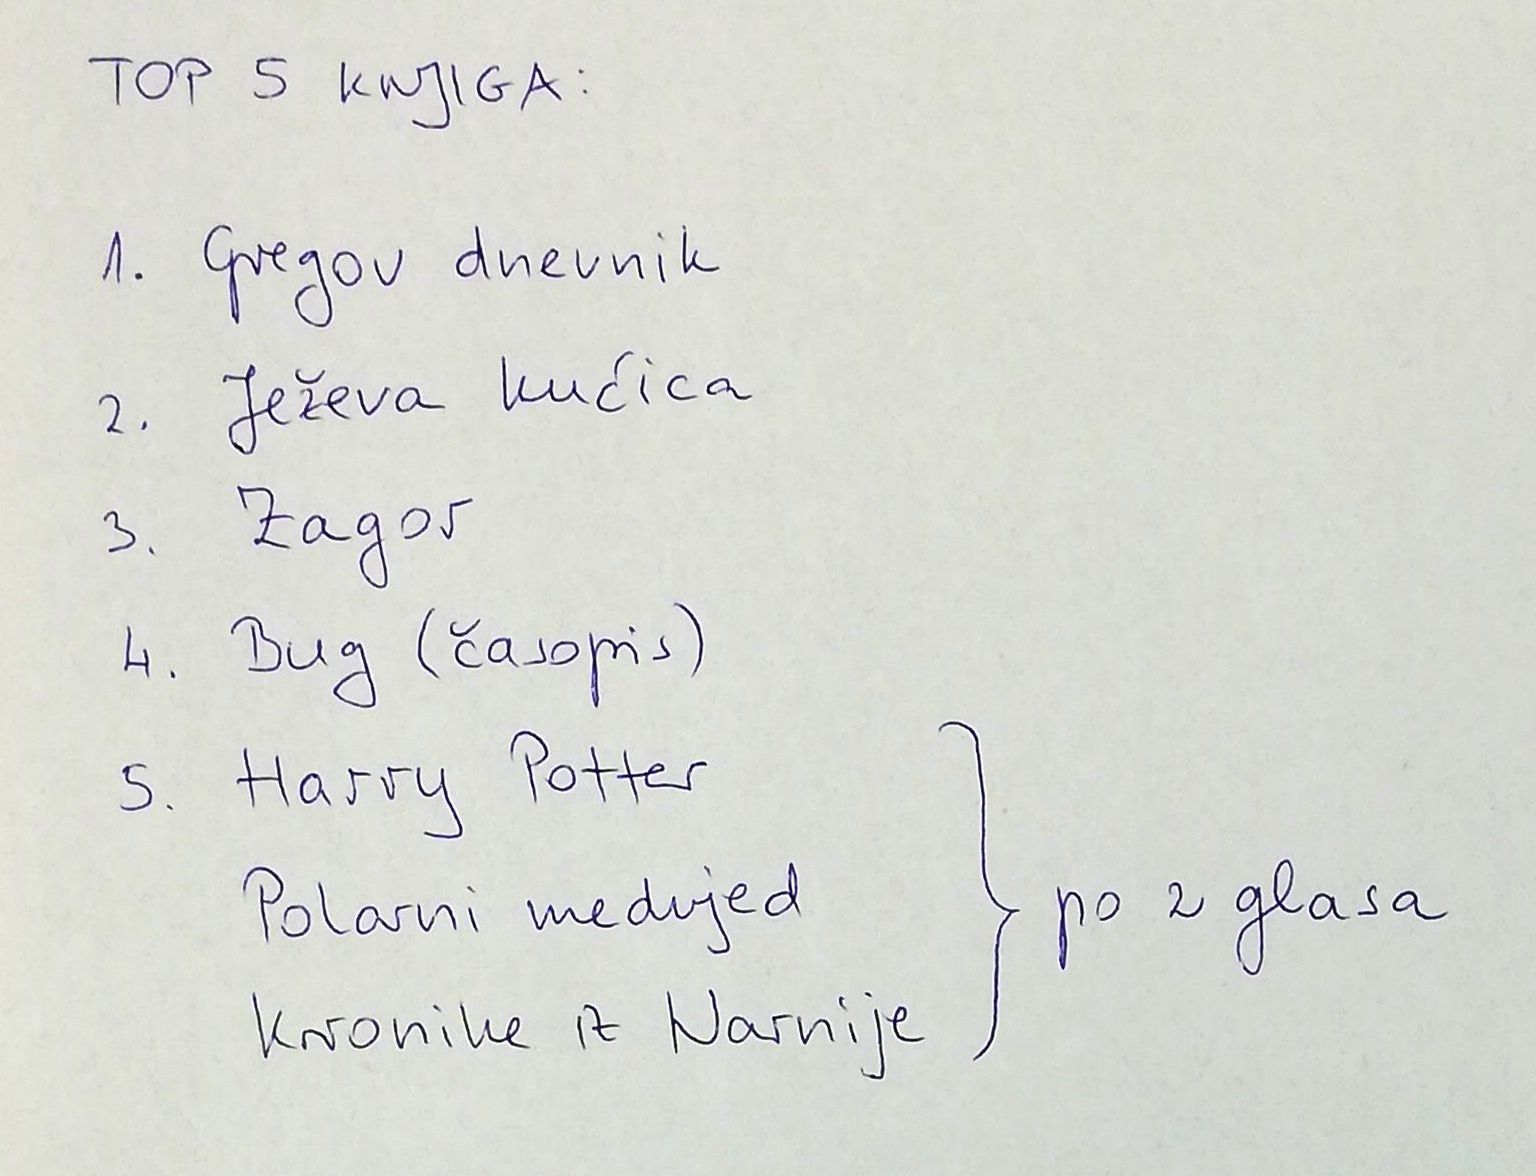 TOP 5 KNJIGA:
1. Gregov dnevnik
2. Ježeva kućica
3. Zagor
4. Bug (časopis)
5. Harry Potter
Polarni medvjed
Kronike iz Narnije
po 2 glasa